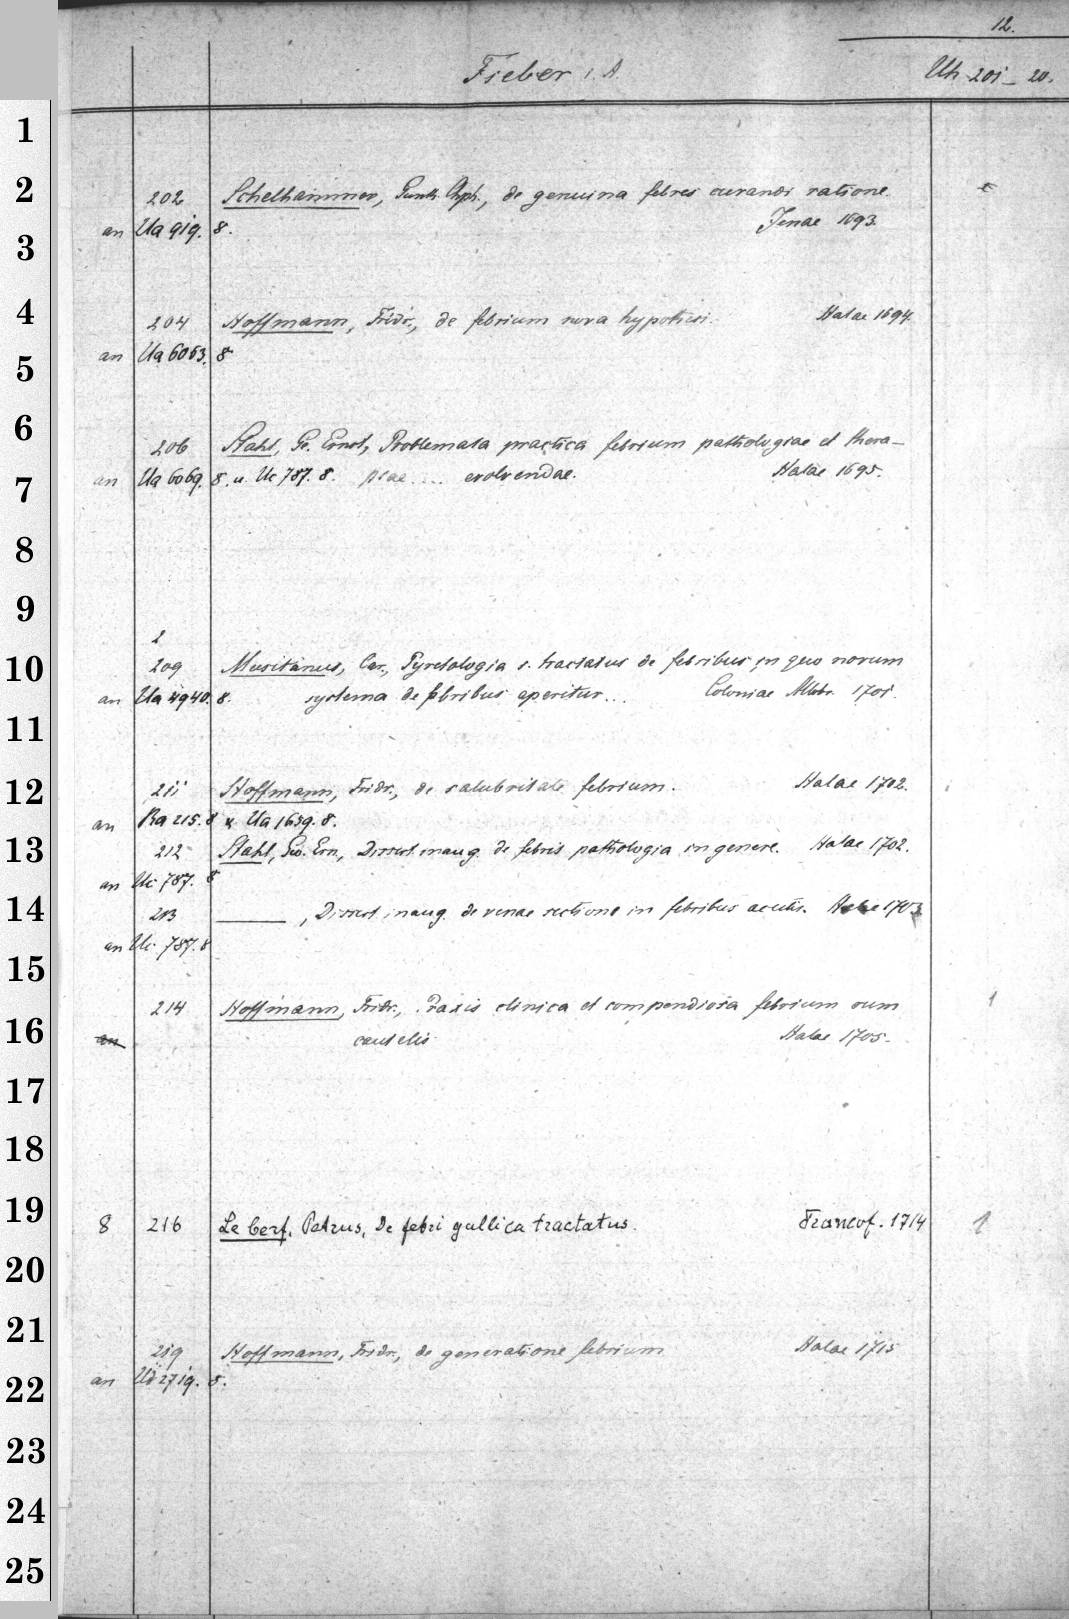 12.
Fieber i. A.
Uh 201- 20.
202 Schelhammer, Gunth. Chph., de genuina febres curandi ratione.
an Ua 919. 8. Jenae 1693.
204 Hoffmann, Fridr., de febrium nova hypothesi. Halae 1694.
an Ua 6053. 8
206 Stahl, Ge. Ernst, Problemata practica febrium pathologiae et thera-
an Ua 6069. 8. u. Uc 787. 8. piae .... evolvendae. Halae 1695.
2
209 Musitanus, Car., Pyretologia s. tractatus de febribus in quo novum
an Ua 4940. 8. systema de febribus aperitur... Coloniae Allobr. 1701.
211 Hoffmann, Fridr., de salubritate febrium. Halae 1702.
an Ra 215. 8 u Ua 1659. 8.
212 Stahl, Geo. Ern., Dissert. inaug. de febris pathologia in genere. Halae 1702.
an Uc 787. 8
213 ———, Dissert. inaug. de venae sectione in febribus acutis. Halae 1703
an Uc 787. 8
214 Hoffmann, Fridr., Praxis clinica et compendiosa febrium cum 1
an cautelis Halae 1705.
8 216 Le Cerf, Petrus, De febri gallica tractatus. Francof. 1714 1
219 Hoffmann, Fridr., de generatione febrium Halae 1715
an 2719. 8.
1
2
3
4
5
6
7
8
9
10
11
12
13
14
15
16
17
18
19
20
21
22
23
24
25